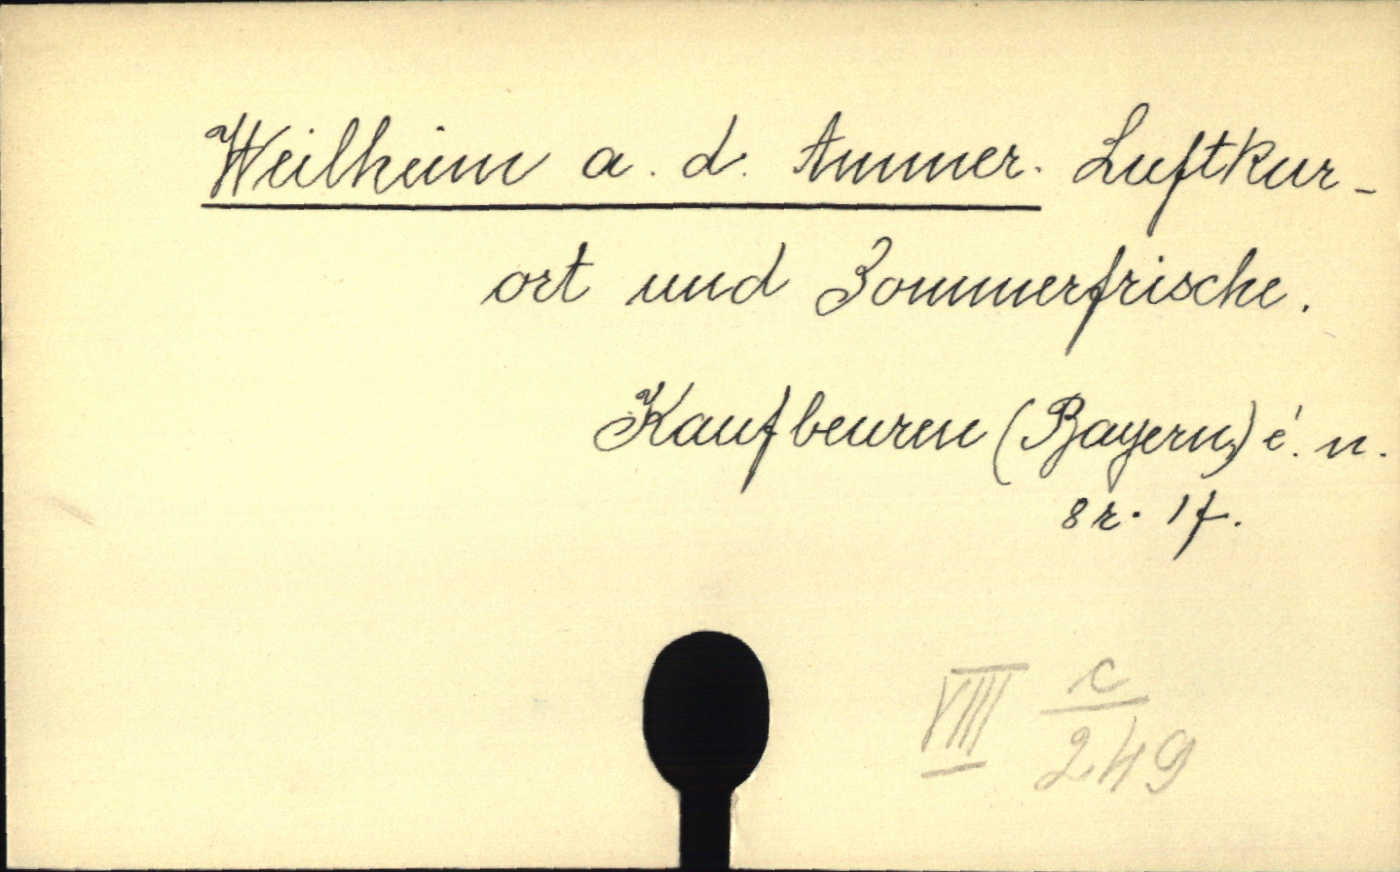 Weilheim a. d. Ammer. Luftkur-
ort und Sommerfrische.
Kaufbeuren (Bayern,) é. n.
8r. 1f.
VIII c/249